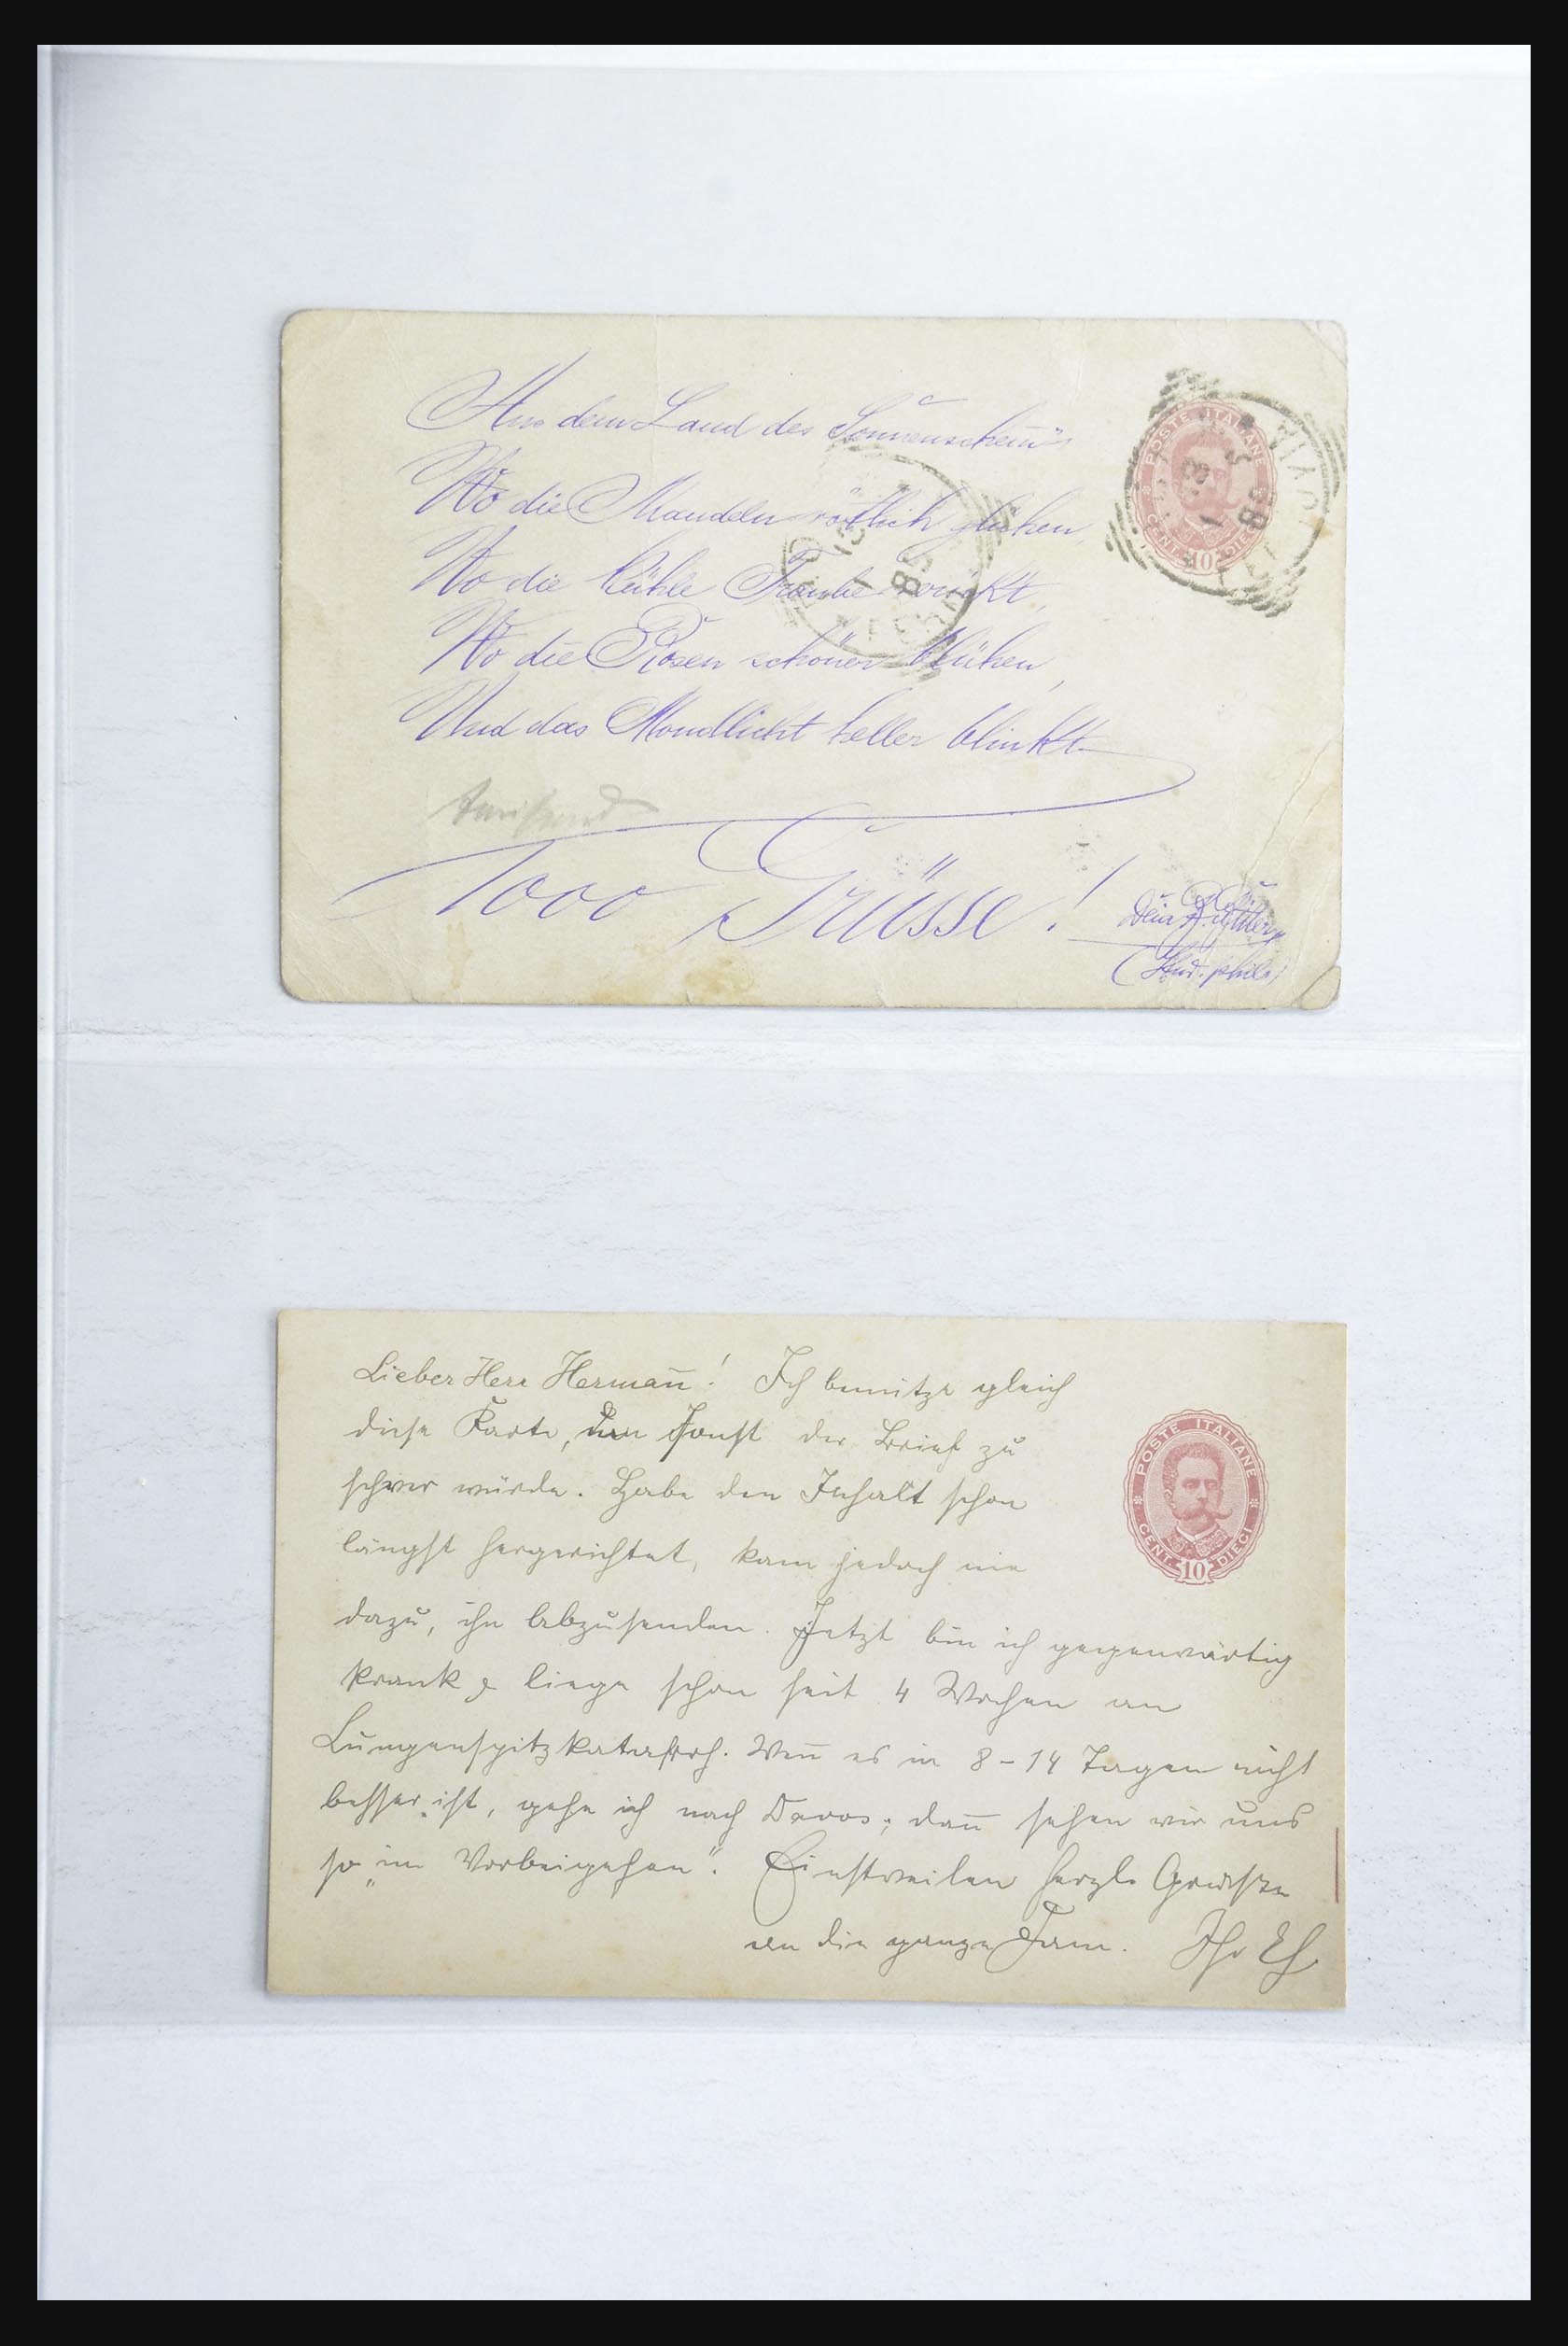 Aus dem Land des Sonnenschein's
Wo die Mandeln rötlich glühen,
Wo die kühle Traube winkt,
Wo die Rosen schöner blühen,
Und das Mondlicht heller blinkt.
1000 Grüsse!
Dein
(stud. phil.)
POSTE ITALIANE
CENT. 10 DIECI
Lieber Herr Hermann! Ich benütze gleich
diese Karte, da sonst der Brief zu
schwer würde. Habe den Inhalt schon
längst hergerichtet, kam jedoch nie
dazu, ihn abzusenden. Jetzt bin ich gegenwärtig
krank & liege schon seit 4 Wochen an
Lungenspitzkatarrh. Wenn es in 8-14 Tagen nicht
besser ist, gehe ich nach Davos; dann sehen wir uns
so „im Vorbeigehen". Einstweilen herzl. Grüsse
an die ganze Fam. Ihr
POSTE ITALIANE
CENT. 10 DIECI